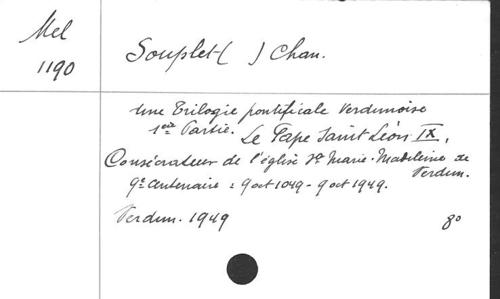 Mel
1190
Souplet ( ) Chan.
Une Trilogie pontificale Verdunoise
1ère Partie. Le Pape Saint Léon IX,
Consécrateur de l'église Ste Marie-Madeleine de
Verdun.
9e Centenaire : 9 oct 1049 - 9 oct 1949.
Verdun. 1949 8º